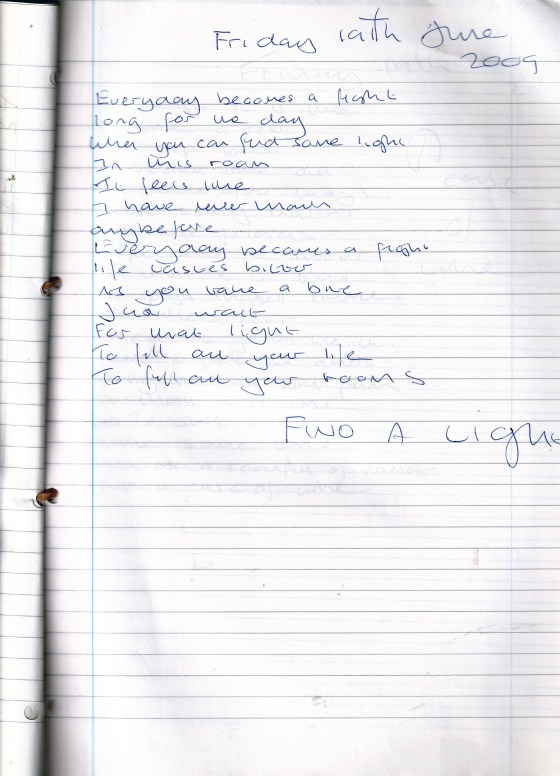 Friday 19th June
2009
Everyday becomes a fight
long for the day
When you can find some light
In this room
It feels like
I have never known
any before
Everyday becomes a fight
life tastes bitter
As you take a bite
Just wait
For that light
To fill all your life
To fill all your rooms
FIND A Light